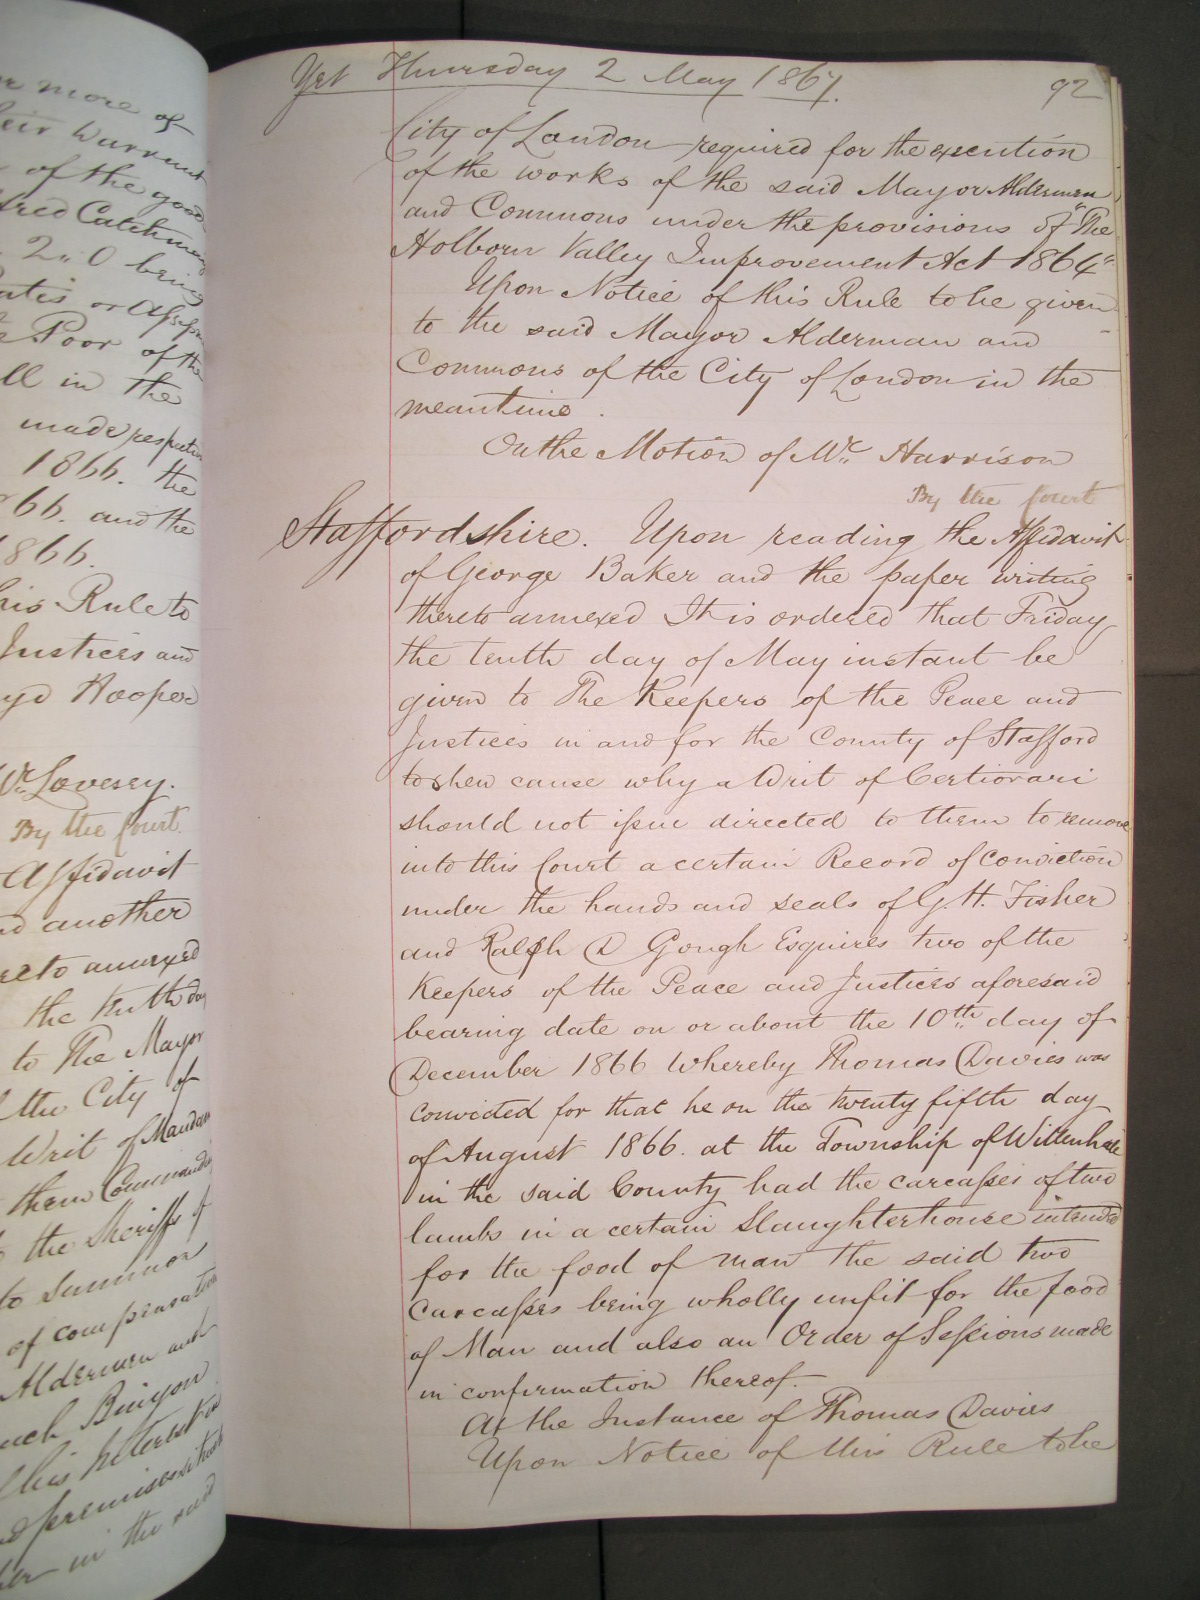 r more of
eir Warrant
of the good
fred Catchm
2"0 being
Rates or Assess
Poor of the
ll in the
made respectin
1866. the
66. and the
1866.
his Rule to
Justices and
Hooper
Mr. Lovesey.
By the Court.
Affidavit
nd another
reto annexed
the tenth day
to The Mayor
the City of
Writ of Mandam
them Commandin
the Sheriffs of
to Summon
of compensation
Aldermen and
Bunyon
his Interest
premises
in the said
Yet Thursday 2 May 1867. 92
City of London required for the execution
of the works of the said Mayor Aldermen
and Commons under the provisions of "The
Holborn Valley Improvement Act 1864"
Upon Notice of this Rule to be given
to the said Mayor Alderman and
Commons of the City of London in the
meantime.
On the Motion of Mr. Harrison
By the Court
Staffordshire. Upon reading the Affidavit
of George Baker and the paper writing
thereto annexed It is ordered that Friday
the tenth day of May instant be
given to The Keepers of the Peace and
Justices in and for the County of Stafford
to shew cause why a Writ of Certiorari
should not issue directed to them to remove
into this Court a certain Record of Conviction
under the hands and seals of G. H. Fisher
and Ralph D Gough Esquires two of the
Keepers of the Peace and Justices aforesaid
bearing date on or about the 10th day of
December 1866 Whereby Thomas Davies was
convicted for that he on the twenty fifth day
of August 1866. at the Township of Willenhall
in the said County had the carcasses of two
lambs in a certain Slaughterhouse intended
for the food of man the said two
Carcasses being wholly unfit for the food
of Man and also an Order of Sessions made
in confirmation thereof.
At the Instance of Thomas Davies
Upon Notice of this Rule to be